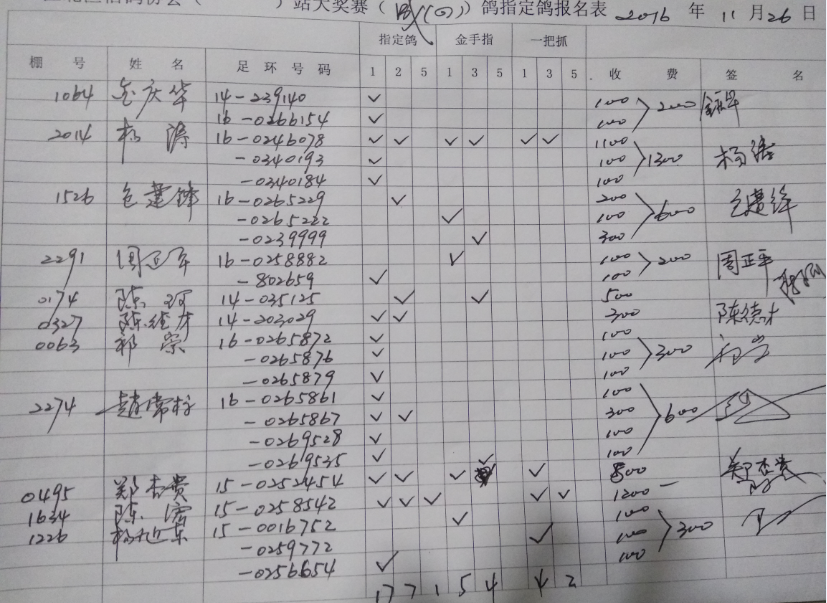 站大奖赛（ 威(四)）鸽指定鸽报名表 2016 年 11 月 26 日
指定鸽 金手指 一把抓
棚 号 姓 名 足 环 号 码 1 2 5 1 3 5 1 3 5 收 费 签 名
1064 金庆华 14-239140 ✓ 100 200
16-0266154 ✓ 100
2014 杨涛 16-0246078 ✓ ✓ ✓ ✓ ✓ ✓ 1100 1300 杨涛
-0340193 ✓ 100
-0340184 ✓ 100
1526 包建锋 16-0265229 ✓ 200 600 包建锋
-0265222 ✓ 100
-0239999 ✓ 300
2291 周正平 16-0258882 ✓ 100 200 周正平
-802659 ✓ 100
0174 陈 14-035125 ✓ ✓ 500
0327 陈德才 14-203029 ✓ ✓ 300 陈德才
0063 祁宗 16-0265872 ✓ 100 300
-0265876 ✓ 100
-0265879 ✓ 100
2274 赵常 16-0265861 ✓ 100 600
-0265867 ✓ ✓ 300
-0269528 ✓ 100
-0269535 ✓ 100
0495 郑杰贵 15-0252454 ✓ ✓ ✓ ✓ ✓ 800 郑杰贵
1634 陈 15-0258542 ✓ ✓ ✓ ✓ ✓ 1200 —
1226 杨 15-0016752 ✓ 100 300
-0259772 ✓ 100
-0256654 ✓ 100
17 7 1 5 4 4 2